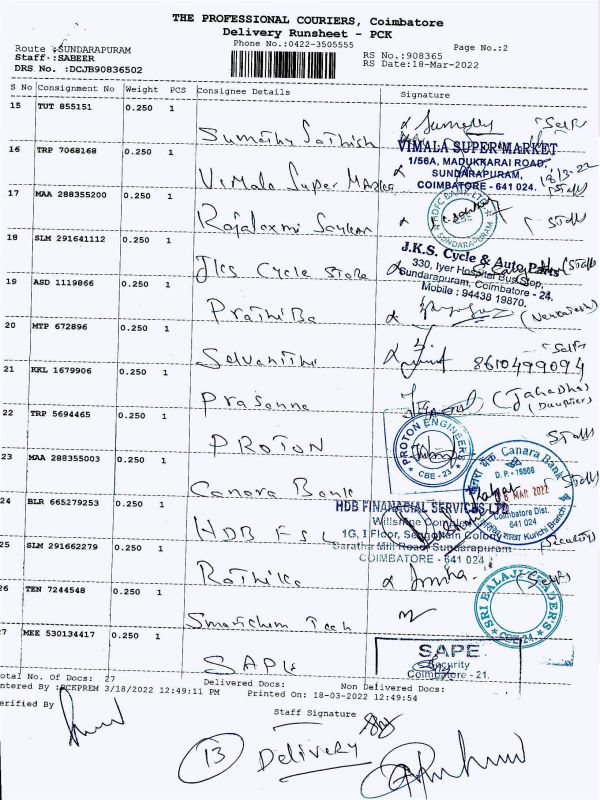 THE PROFESSIONAL COURIERS, Coimbatore
Delivery Runsheet - PCK
Phone No.:0422-3505555
Page No.:2
Route :SUNDARAPURAM
Staff :SABEER
DRS No. :DCJB90836502
RS No.:908365
RS Date:18-Mar-2022
S No Consignment No Weight PCS Consignee Details Signature
15 TUT 855151 0.250 1
Sumathy Sathish
16 TRP 7068168 0.250 1
Vimala Super Market
VIMALA SUPER MARKET
1/56A, MADUKKARAI ROAD,
SUNDARAPURAM,
COIMBATORE - 641 024.
18/3-22
17 MAA 288355200 0.250 1
Staff
HDFC BANK LTD
SUNDARAPURAM
18 SLM 291641112 0.250 1
JKS Cycle Store
J.K.S. Cycle & Auto Parts
330, Iyer Hospital Bus Stop,
Sundarapuram, Coimbatore - 24.
Mobile : 94438 19870.
19 ASD 1119866 0.250 1
Prathiba
20 MTP 672896 0.250 1
Selvanithi
8610499094
21 KKL 1679906 0.250 1
Prasanna
(Daughter)
22 TRP 5694465 0.250 1
PROTON
Staff
PROTON ENGINEER
CBE - 23
23 MAA 288355003 0.250 1
Canara Bank
Canara Bank
D. P. - 16506
MAR 2022
Coimbatore Dist.
641 024
Kurichi Branch
Staff
24 BLR 665279253 0.250 1
HDB FSL
HDB FINANACIAL SERVICES LTD
1G, I Floor, Sengottain Colony
Saratha Mill Road, Sundarapuram
COIMBATORE - 641 024
(Security)
25 SLM 291662279 0.250 1
Rathika
26 TEN 7244548 0.250 1
Smartchem Tech
SRI BALAJI TRADERS
CBE-24
27 MEE 530134417 0.250 1
SAPE
SAPE
Security
Coimbatore - 21.
otal No. of Docs: 27 Delivered Docs: Non Delivered Docs:
ntered By :PCKPREM 3/18/2022 12:49:11 PM Printed On: 18-03-2022 12:49:54
erified By
Staff Signature
13 Delivery